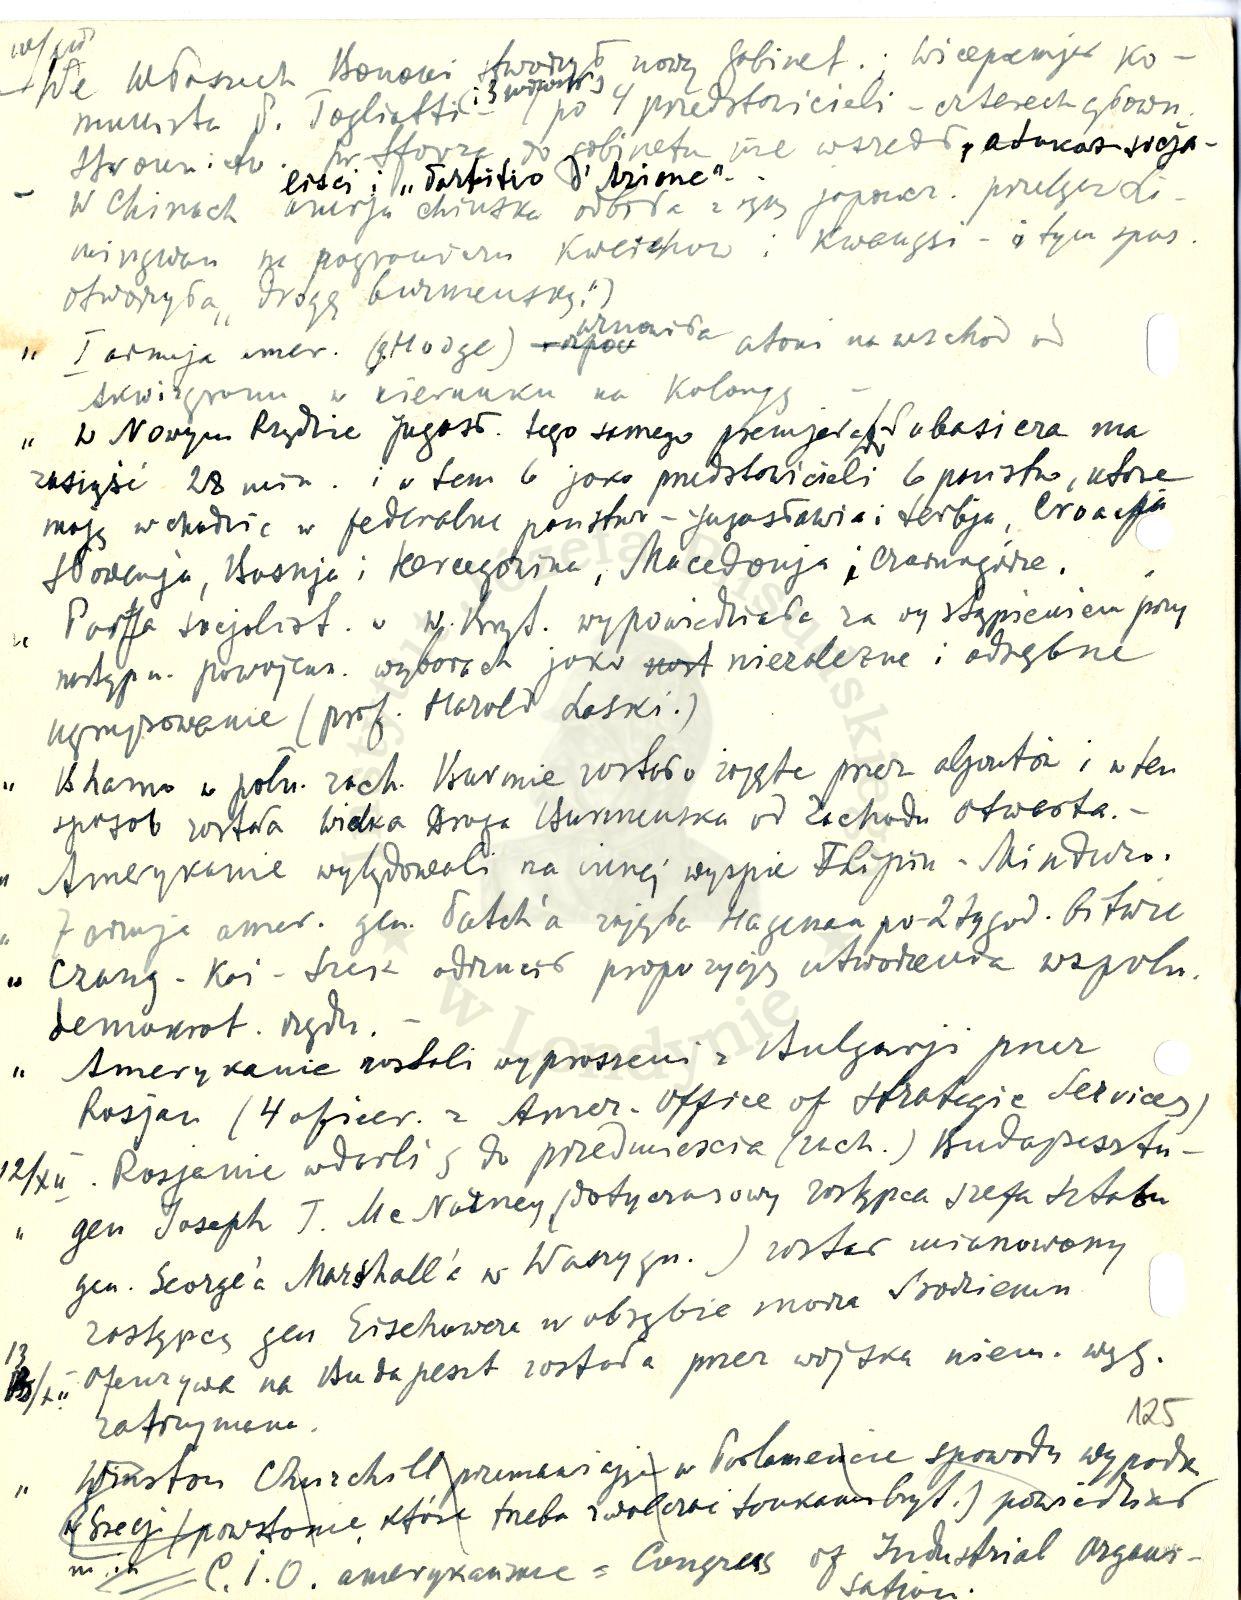 We Włoszech Bonomi stworzył nowy gabinet. ; wicepremjer ko-
munista P. Togliatti - (po 4 przedstawicieli - czterech główn.
i 3 
stronnictw. hr. Sforza do gabinetu nie wszedł, a także socja-
liści i "Partito d'Azione" -
- W Chinach armja chińska odbiła z rąk japońsk. przełęcz Li-
mingwan na pograniczu Kweichow i Kwangsi - i tym spos.
otworzyła "drogę burmeńską")
" I armja amer. (g. Hodge) wznowiła ataki na wschód od
Akwizgranu w kierunku na Kolonję -
" W Nowym Rządzie Jugosł. tego samego premjera dr Subasicza ma
zasiąść 28 min. i w tem 6 jako przedstawicieli 6 państw, które
mają wchodzić w federalne państwo - Jugosławja i Serbja, Croacja
Słowenja, Bosnja i Hercegowina, Macedonja i Czarnogórze.
" Partja socjalist. w W. Bryt. wypowiedziała za wystąpieniem przy
następn. powojenn. wyborach jako niezależne i odrębne
ugrupowanie (prof. Harold Laski.)
" Bhamo w półn. zach. Burmie zostało zajęte przez aljantów i w ten
sposób została Wielka Droga Burmeńska od Zachodu otwarta. -
" Amerykanie wylądowali na innej wyspie Filipin - Mindoro.
" 7 armja amer. gen. Patch'a zajęła Hagenau po 2 tygod. bitwie
" Czang-Kai-Szek odrzucił propozycję utworzenia wspóln.
demokrat. rządu. -
" Amerykanie zostali wyproszeni z Bulgarji przez
Rosjan (4 oficer. z Amer. Office of Strategic Services)
12/XII. Rosjanie wdarli ś do przedmieścia (zach.) Budapesztu -
" gen Joseph T. Mc Narney (dotyczasowy zastępca szefa sztabu
gen. George'a Marshall'a w Waszygn.) został mianowany
zastępcą gen Eisehowera w obrębie morza Środziemn
13/XII Ofenzywa na Budapeszt została przez wojska niem. węg.
zatrzymana.
125
" Winston Churchill przemawiając w Parlamencie spowodu wypadk
w Grecji (powstanie, które trzeba zwalczać bryt.) powiedział
m. in
C.I.O. amerykańskie = Congress of Industrial Organi-
sation.
Instytut Józefa Piłsudskiego
w Londynie